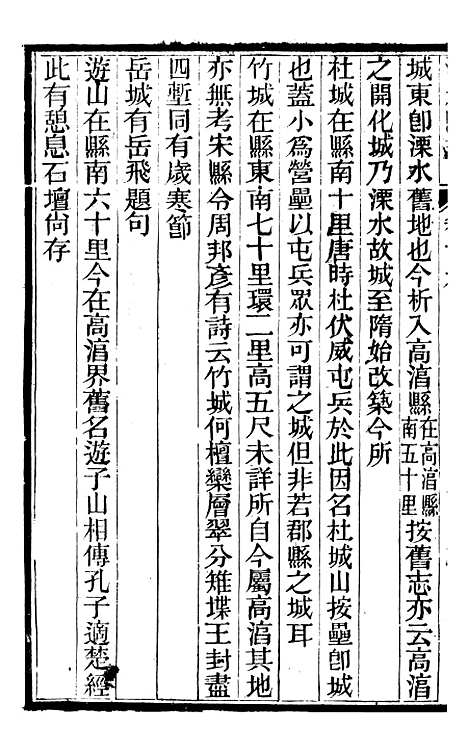 城東卽溧水舊地也今析入高湻縣在高湻縣南五十里按舊志亦云高湻
之開化城乃溧水故城至隋始改築今所
杜城在縣南十里唐時杜伏威屯兵於此因名杜城山按壘卽城
也蓋小爲營壘以屯兵眾亦可謂之城但非若郡縣之城耳
竹城在縣東南七十里環二里高五尺未詳所自今屬高湻其地
亦無考宋縣令周邦彥有詩云竹城何檀欒層翠分雉堞王封盡
四塹同有歲寒節
岳城有岳飛題句
遊山在縣南六十里今在高湻界舊名遊子山相傳孔子適楚經
此有憩息石壇尙存